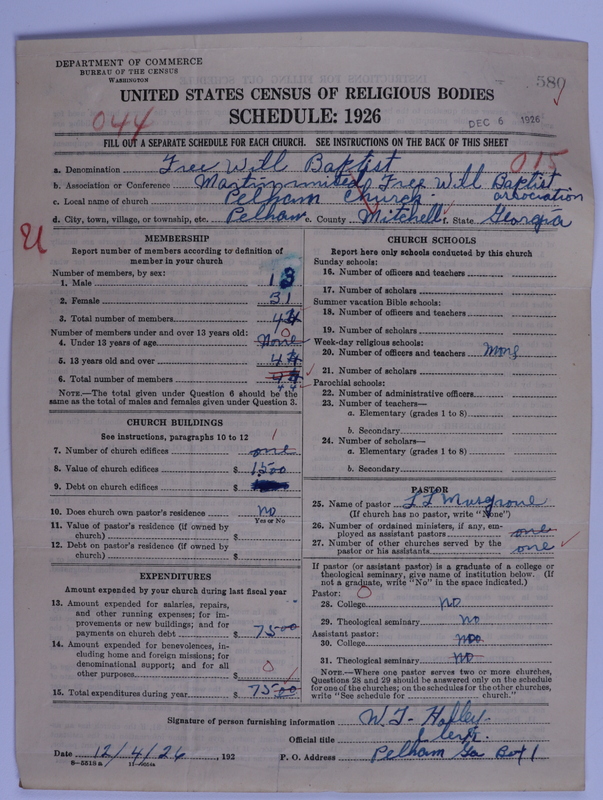 DEPARTMENT OF COMMERCE
BUREAU OF THE CENSUS
WASHINGTON
580
UNITED STATES CENSUS OF RELIGIOUS BODIES
SCHEDULE: 1926
044
DEC 6 1926
FILL OUT A SEPARATE SCHEDULE FOR EACH CHURCH. SEE INSTRUCTIONS ON THE BACK OF THIS SHEET
015
a. Denomination Free Will Baptist
b. Association or Conference Martin united Free Will Baptist association
c. Local name of church Pelham Church
d. City, town, village, or township, etc. Pelham e. County Mitchell f. State Georgia
U
MEMBERSHIP
Report number of members according to definition of
member in your church
Number of members, by sex:
1. Male 13
2. Female 31
3. Total number of members 44
Number of members under and over 13 years old: 0
4. Under 13 years of age None
5. 13 years old and over 44
6. Total number of members 44
NOTE.—The total given under Question 6 should be the
same as the total of males and females given under Question 3.
CHURCH BUILDINGS
See instructions, paragraphs 10 to 12
7. Number of church edifices one 1
8. Value of church edifices $ 1500
9. Debt on church edifices $
10. Does church own pastor's residence no
Yes or No
11. Value of pastor's residence (if owned by
church) $
12. Debt on pastor's residence (if owned by
church) $
EXPENDITURES
Amount expended by your church during last fiscal year
13. Amount expended for salaries, repairs,
and other running expenses; for im-
provements or new buildings; and for
payments on church debt $ 7500
14. Amount expended for benevolences, in-
cluding home and foreign missions; for
denominational support; and for all
other purposes $ 0
15. Total expenditures during year $ 7500
CHURCH SCHOOLS
Report here only schools conducted by this church
Sunday schools:
16. Number of officers and teachers
17. Number of scholars
Summer vacation Bible schools:
18. Number of officers and teachers
19. Number of scholars
Week-day religious schools:
20. Number of officers and teachers
21. Number of scholars
Parochial schools:
22. Number of administrative officers
23. Number of teachers—
a. Elementary (grades 1 to 8)
b. Secondary
24. Number of scholars—
a. Elementary (grades 1 to 8)
b. Secondary
PASTOR
25. Name of pastor Musgrove
(If church has no pastor, write "None")
26. Number of ordained ministers, if any, em-
ployed as assistant pastors one
27. Number of other churches served by the
pastor or his assistants one
If pastor (or assistant pastor) is a graduate of a college or
theological seminary, give name of institution below. (If
not a graduate, write "No" in the space indicated.)
Pastor: 0
28. College no
29. Theological seminary no
Assistant pastor:
30. College no
31. Theological seminary no
NOTE.—Where one pastor serves two or more churches,
Questions 28 and 29 should be answered only on the schedule
for one of the churches; on the schedules for the other churches,
write "See schedule for church."
Signature of person furnishing information W. T.
Official title Clerk
Date 12/4/26, 192 P. O. Address Pelham Ga Box 1
8—5518 a